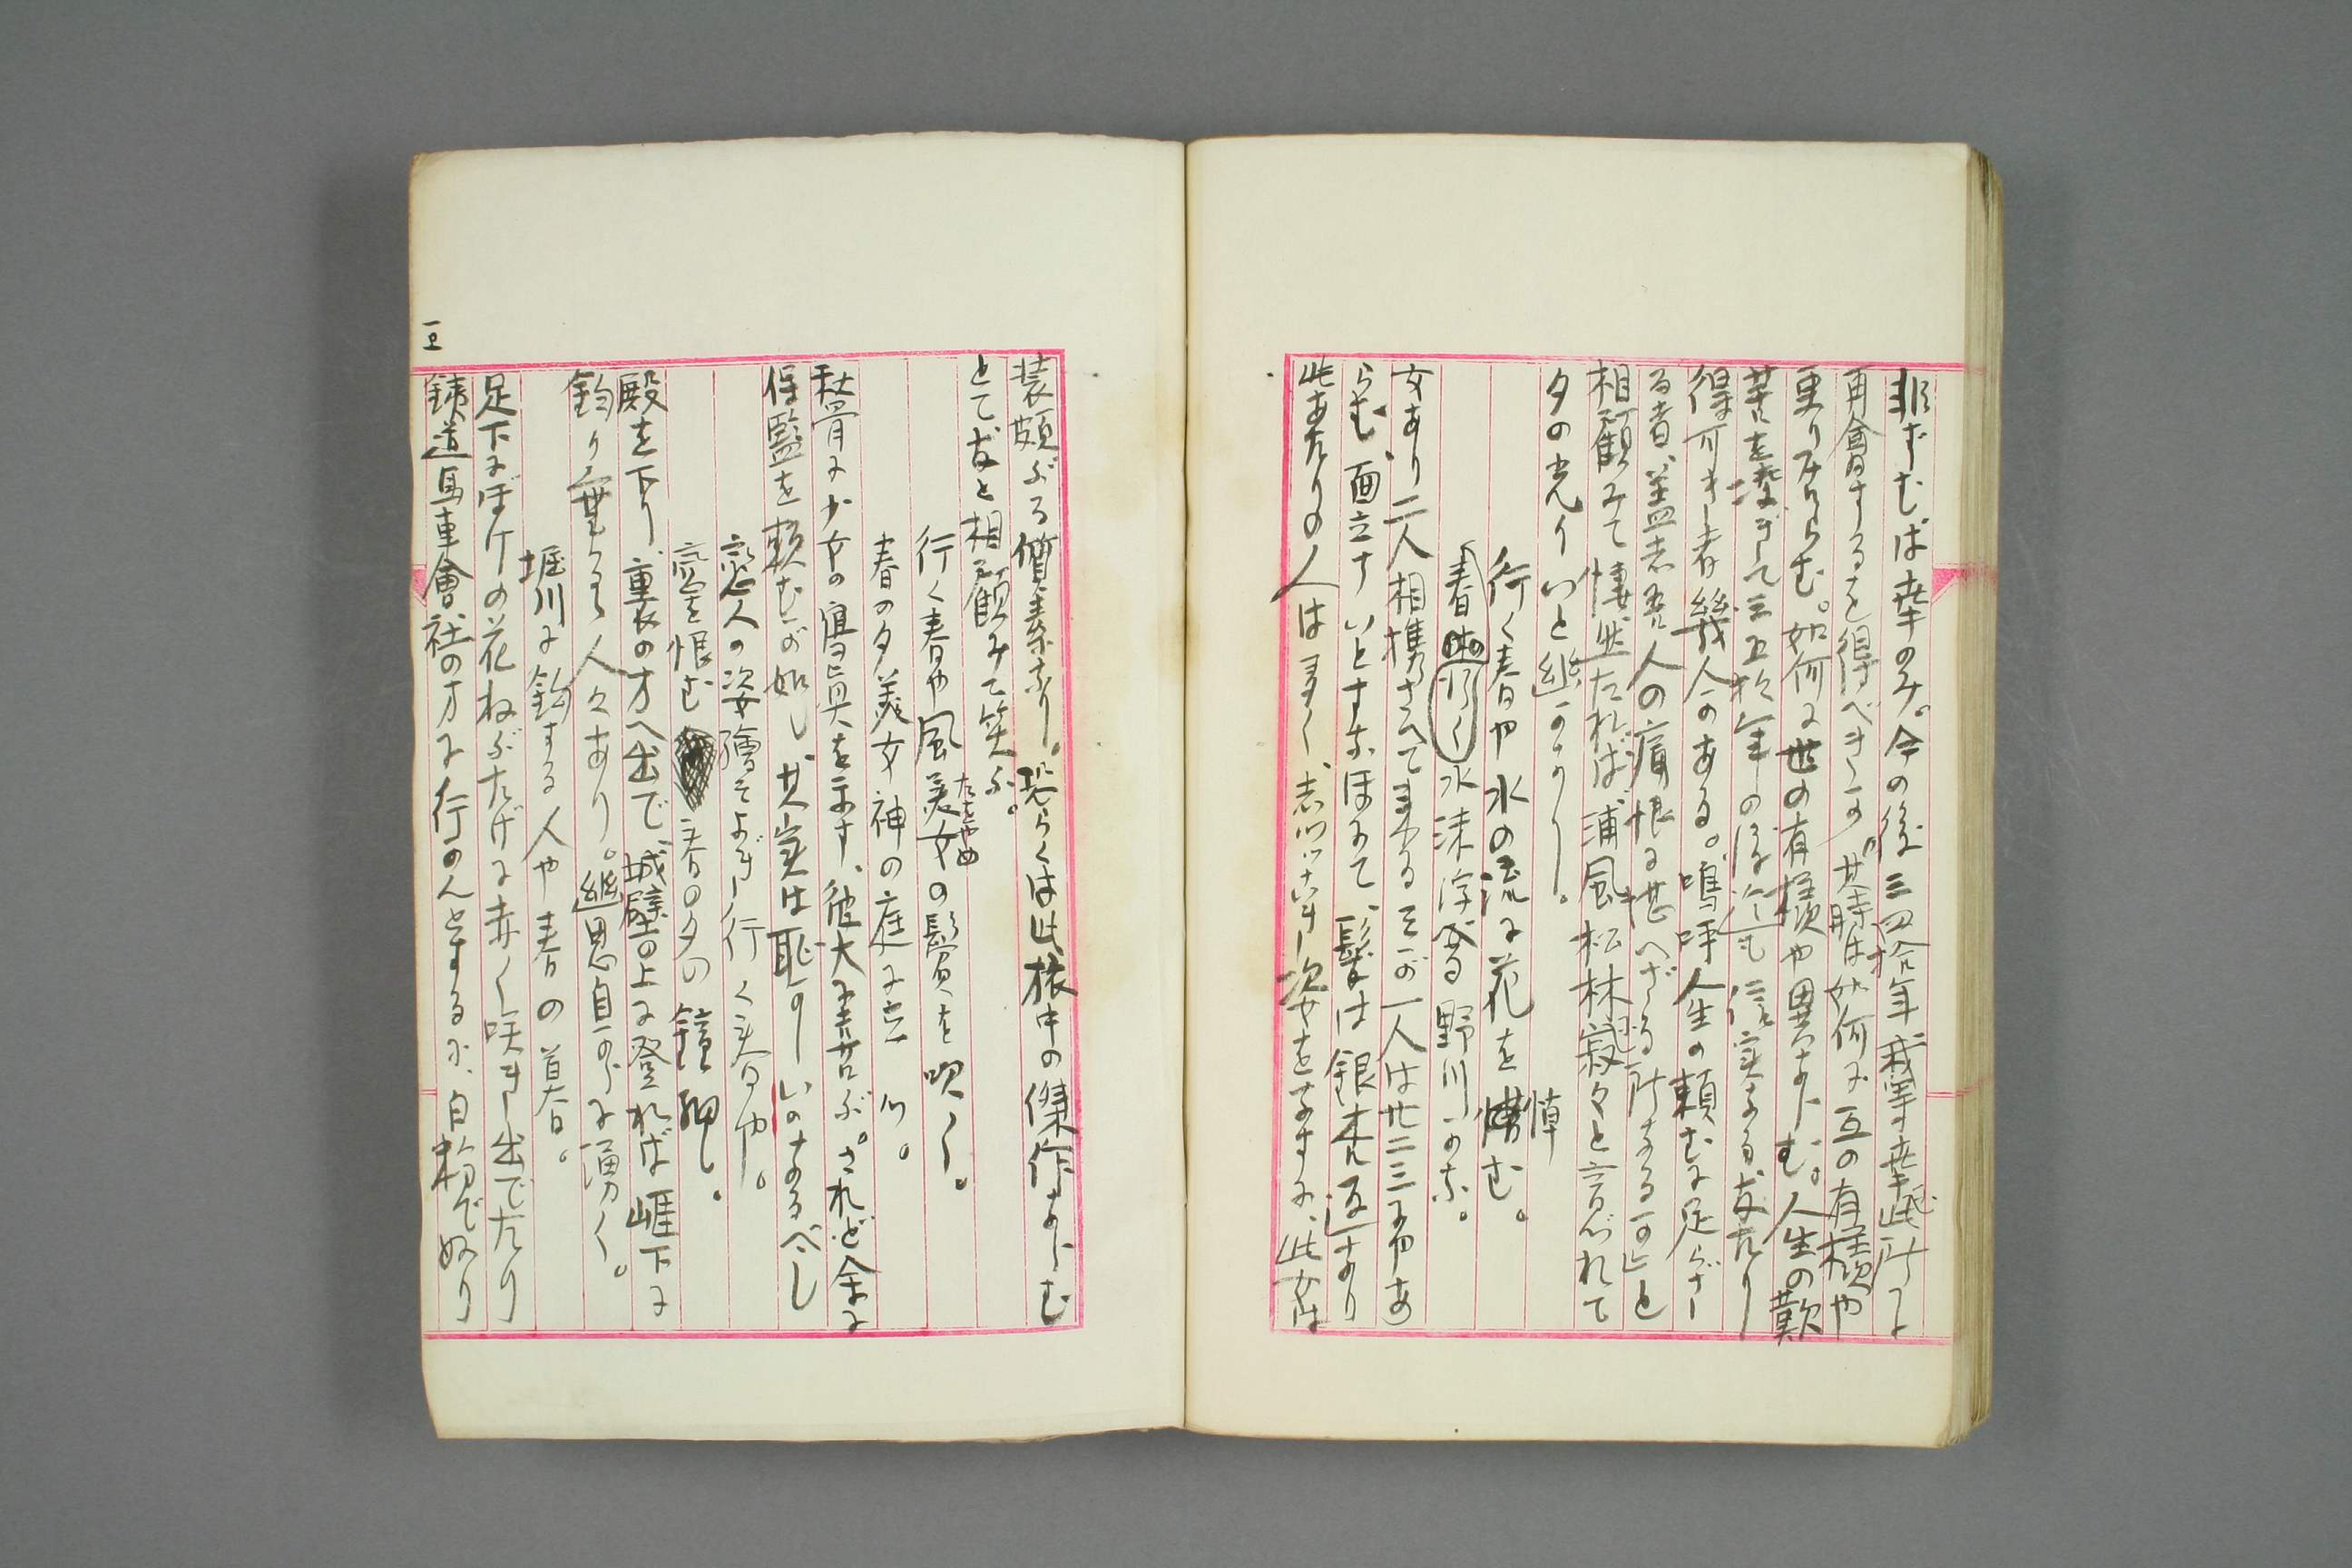 非ずむば幸のみ。今の後三四拾年我等幸此所に
再會するを得べきか。其時は如何に互の有様や
更りみらむ。如何に世の有様や異あらむ。人生の歎
苦を嘗ぎて三五拾年の後迄も信実なる友たり
得可き者幾人かある。嗚呼人生の頼むに足らざ
る者、蓋志吾人の痛恨に堪へざる所なる可しと
相顧みて悽然たれば浦風松林寂々と音づれて
夕の光りいと幽かなり。
行く春や水の流に花を悼む。
春幽かく水沫浮べる野川かな。
女あり二人相携さへて来る其が一人は廿二三にやあ
らむ面立すいとすなほにて、髪は銀杏返しなり
此あたりの人は未しく志つけき姿をなすに、此女は
装頗ぶる質素なり。恐らくは此旅中の傑作ならむ
とて友と相顧みて笑ふ。
行く春や風美女の鬢を吹く。
たをやめ
春の夕美女神の庭に立つ。
秋骨に少女の寫眞を示す、彼大に喜ぶ。されど余に
保監を頼むが如し、其実は恥かしいのなるべし
恋人の姿繪そよぎ行く春や。
恋を恨む春の夕の鐘細し。
殿を下り裏の方へ出で城壁の上に登れば崕下に
釣り垂るる人々あり。幽思自から湧く。
堀川に釣する人や春の暮。
足下にぼけの花ねぶたげに赤く咲き出でたり
鉄道馬車會社の方に行かんとするに、白粉でぬり
五